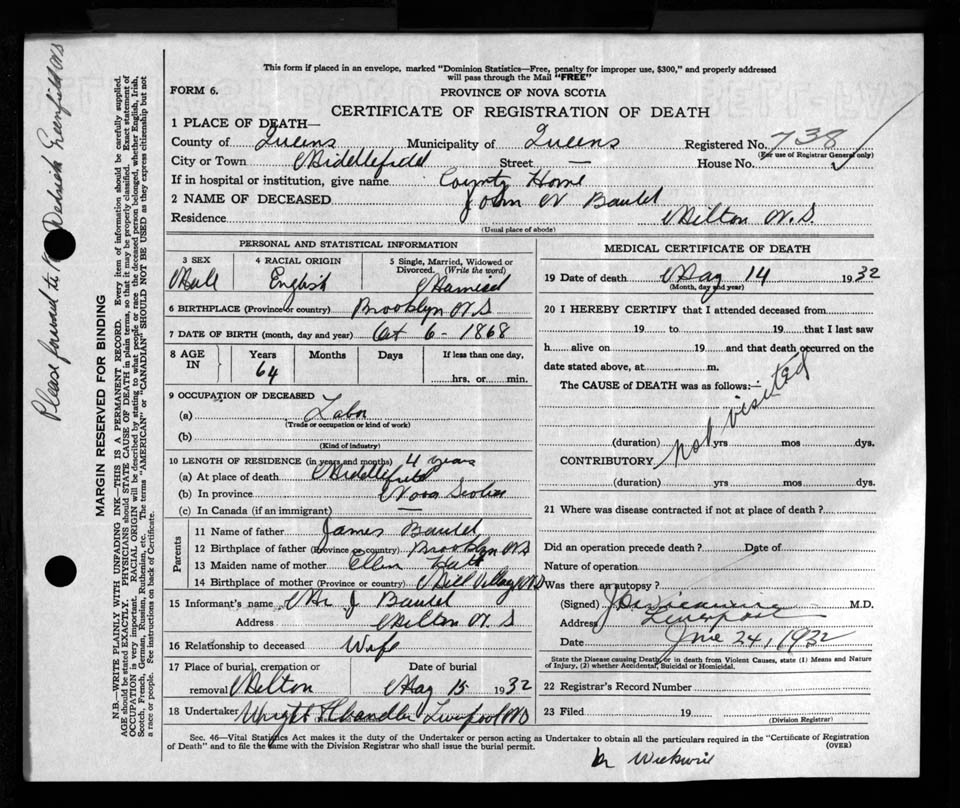 This form if placed in an envelope, marked "Dominion Statistics—Free, penalty for improper use, $300," and properly addressed
will pass through the Mail "FREE"
FORM 6.
PROVINCE OF NOVA SCOTIA
CERTIFICATE OF REGISTRATION OF DEATH
1 PLACE OF DEATH—
County of Queens Municipality of Queens Registered No. 738
(For use of Registrar General only)
City or Town Middlefield Street — House No.
If in hospital or institution, give name County Home
2 NAME OF DECEASED John W
Residence Milton N.S
(Usual place of abode)
PERSONAL AND STATISTICAL INFORMATION
3 SEX 4 RACIAL ORIGIN 5 Single, Married, Widowed or Divorced. (Write the word)
Male English Married
6 BIRTHPLACE (Province or country) Brooklyn N S
7 DATE OF BIRTH (month, day and year) Oct 6 - 1868
8 AGE IN Years Months Days If less than one day,
64 hrs. or min.
9 OCCUPATION OF DECEASED
(a) Labor
(Trade or occupation or kind of work)
(b)
(Kind of industry)
10 LENGTH OF RESIDENCE (in years and months) 4 years
(a) At place of death Middlefield
(b) In province Nova Scotia
(c) In Canada (if an immigrant) —
Parents
11 Name of father James
12 Birthplace of father (Province or country) Brooklyn NS
13 Maiden name of mother Ellen
14 Birthplace of mother (Province or country) Mill Village NS
15 Informant's name Mr J
Address Milton N. S
16 Relationship to deceased Wife
17 Place of burial, cremation or removal Milton Date of burial May 15 1932
18 Undertaker Wright & Chandler Liverpool NS
MEDICAL CERTIFICATE OF DEATH
19 Date of death May 14 1932
(Month, day and year)
20 I HEREBY CERTIFY that I attended deceased from
19 to 19 that I last saw
h alive on 19 and that death occurred on the
date stated above, at m.
The CAUSE of DEATH was as follows:-
not visited
(duration) yrs mos dys.
CONTRIBUTORY
(duration) yrs mos dys.
21 Where was disease contracted if not at place of death?
Did an operation precede death? Date of
Nature of operation
Was there an autopsy?
(Signed) M.D.
Address Liverpool
Date June 24, 1932
State the Disease causing Death, or in death from Violent Causes, state (1) Means and Nature
of Injury, (2) whether Accidental, Suicidal or Homicidal.
22 Registrar's Record Number
23 Filed 19
(Division Registrar)
Sec. 46—Vital Statistics Act makes it the duty of the Undertaker or person acting as Undertaker to obtain all the particulars required in the "Certificate of Registration
of Death" and to file the same with the Division Registrar who shall issue the burial permit. (OVER)
Dr Wickwire
Please forward to Dedrick Greenfield NS
MARGIN RESERVED FOR BINDING
N.B.—WRITE PLAINLY WITH UNFADING INK—THIS IS A PERMANENT RECORD. Every item of information should be carefully supplied.
AGE should be stated EXACTLY. PHYSICIANS should STATE CAUSE OF DEATH in plain terms, so that it may be properly classified. Exact statement of
OCCUPATION is very important. RACIAL ORIGIN will be described by stating to what people or race the deceased person belonged, whether English, Irish,
Scotch, French, German, Russian, Ruthenian, etc. The terms "AMERICAN" or "CANADIAN" SHOULD NOT BE USED as they express citizenship but not
a race or people. See instructions on back of Certificate.